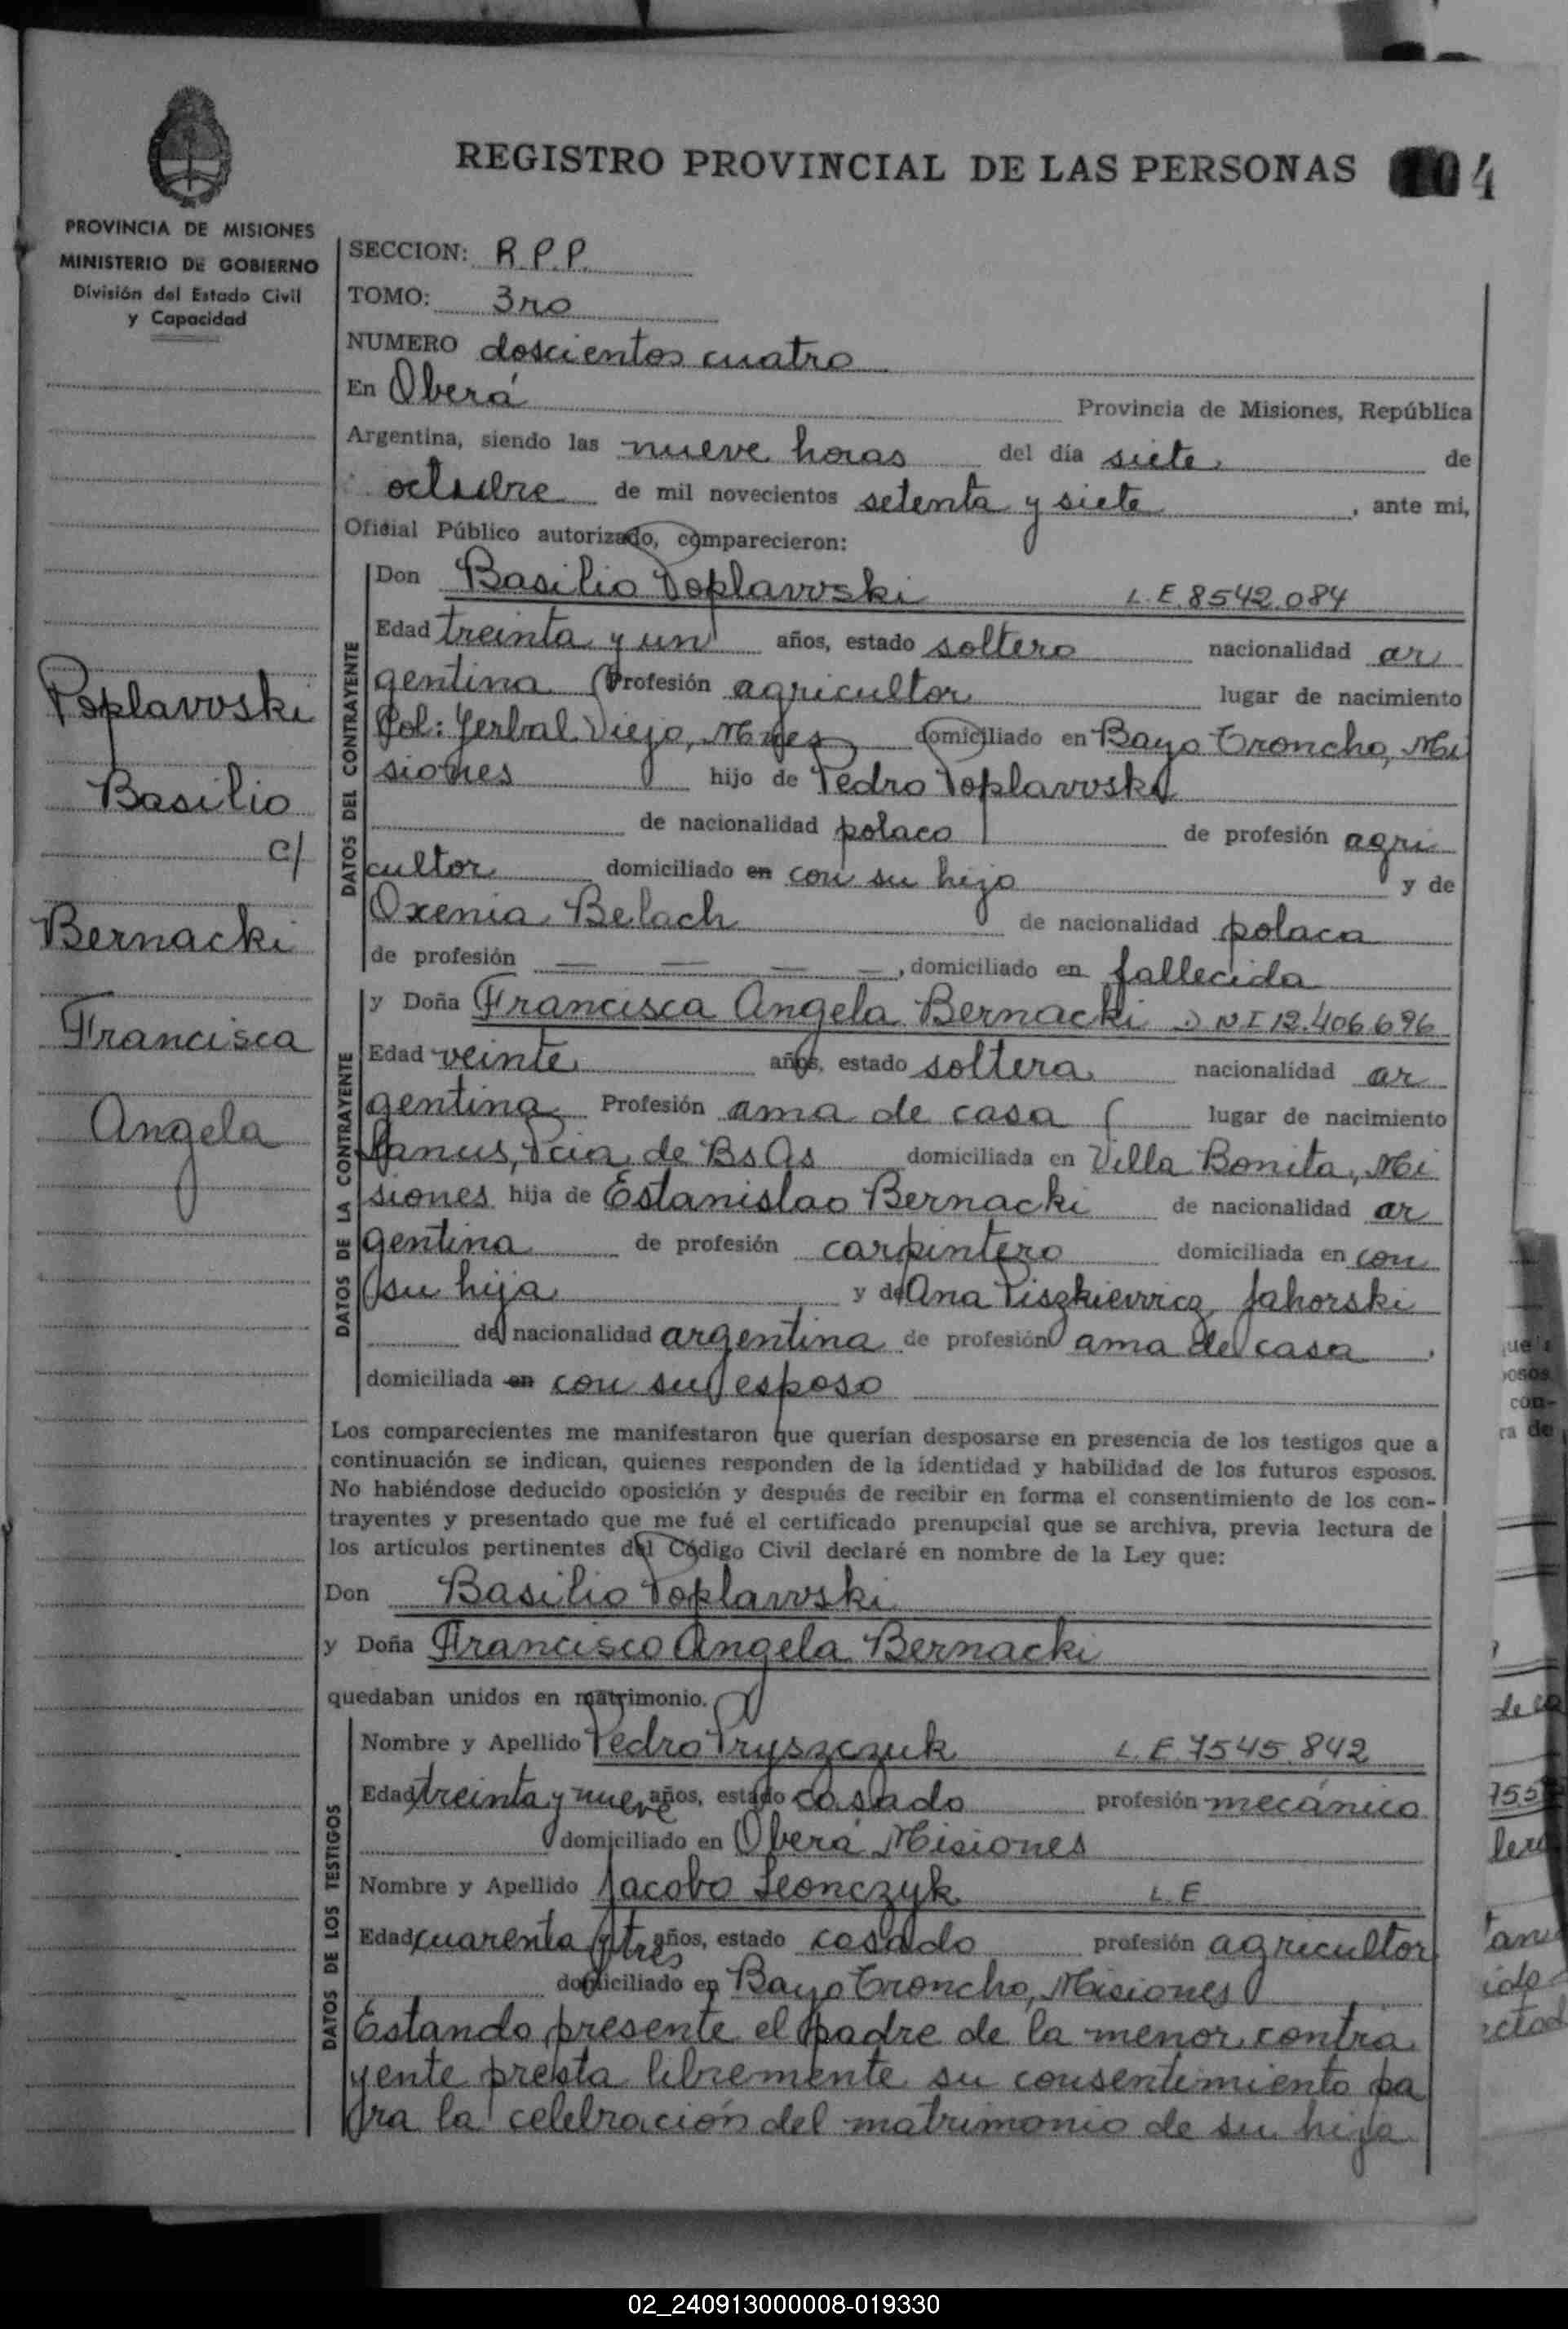 REGISTRO PROVINCIAL DE LAS PERSONAS 04
PROVINCIA DE MISIONES
MINISTERIO DE GOBIERNO
División del Estado Civil
y Capacidad
Poplavvski
Basilio
c/
Bernacki
Francisca
Angela
SECCION: R.P.P.
TOMO: 3ro
NUMERO doscientos cuatro
En Oberá Provincia de Misiones, República
Argentina, siendo las nueve horas del día siete de
octubre de mil novecientos setenta y siete, ante mi,
Oficial Público autorizado, comparecieron:
DATOS DEL CONTRAYENTE
Don Basilio Poplavvski L.E. 8542.084
Edad treinta y un años, estado soltero nacionalidad ar
gentina Profesión agricultor lugar de nacimiento
Col: Yerbal Viejo, Mnes domiciliado en Bayo Troncho, Mi
siones hijo de Pedro Poplavvski
de nacionalidad polaco de profesión agri
cultor domiciliado en con su hijo y de
Oxenia Belach de nacionalidad polaca
de profesión — — — —, domiciliado en fallecida
DATOS DE LA CONTRAYENTE
y Doña Francisca Angela Bernacki DNI 12.406.696
Edad veinte años, estado soltera nacionalidad ar
gentina Profesión ama de casa lugar de nacimiento
Lanus, Pcia de Bs As domiciliada en Villa Bonita, Mi
siones hija de Estanislao Bernacki de nacionalidad ar
gentina de profesión carpintero domiciliada en con
su hija y de Ana Piszkievvicz Jahorski
de nacionalidad argentina de profesión ama de casa.
domiciliada en con su esposo
Los comparecientes me manifestaron que querían desposarse en presencia de los testigos que a
continuación se indican, quienes responden de la identidad y habilidad de los futuros esposos.
No habiéndose deducido oposición y después de recibir en forma el consentimiento de los con-
trayentes y presentado que me fué el certificado prenupcial que se archiva, previa lectura de
los artículos pertinentes del Código Civil declaré en nombre de la Ley que:
Don Basilio Poplavvski
y Doña Francisco Angela Bernacki
quedaban unidos en matrimonio.
DATOS DE LOS TESTIGOS
Nombre y Apellido Pedro Pryszczuk L.E 7545.842
Edad treinta y nueve años, estado casado profesión mecánico
domiciliado en Oberá Misiones
Nombre y Apellido Jacobo Leonczyk L.E
Edad cuarenta y tres años, estado casado profesión agricultor
domiciliado en Bayo Troncho, Misiones
Estando presente el padre de la menor contra
yente presta libremente su consentimiento pa
ra la celebración del matrimonio de su hija
02_240913000008-019330